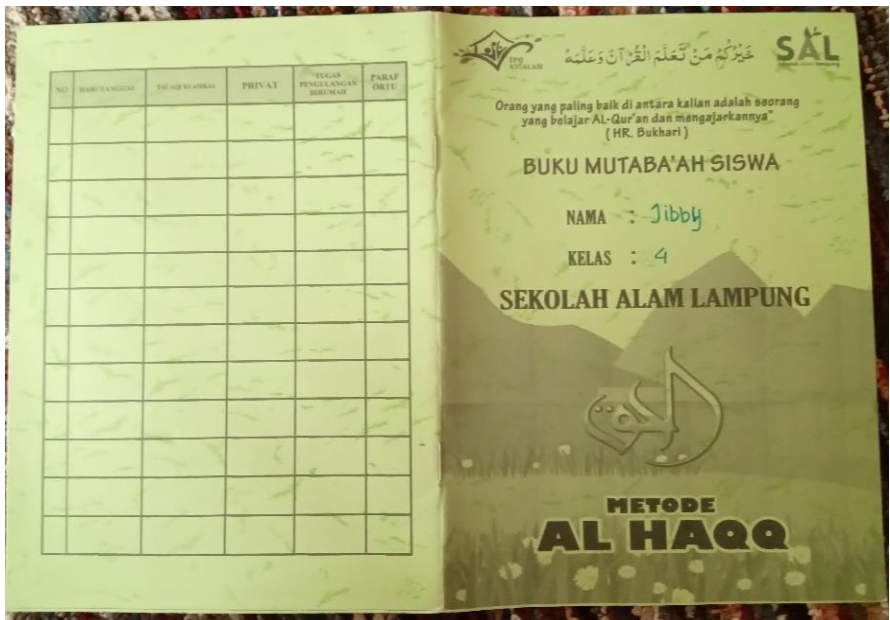 NO HARI/TANGGAL TALAQI KLASIKAL PRIVAT TUGAS PENGULANGAN DIRUMAH PARAF ORTU
TPQ
ASSALAM
خَيْرُكُمْ مَنْ تَعَلَّمَ الْقُرْآنَ وَعَلَّمَهُ
SAL
Orang yang paling baik di antara kalian adalah seorang
yang belajar AL-Qur'an dan mengajarkannya"
( HR. Bukhari )
BUKU MUTABA'AH SISWA
NAMA : Jibby
KELAS : 4
SEKOLAH ALAM LAMPUNG
الحق
METODE
AL HAQQ